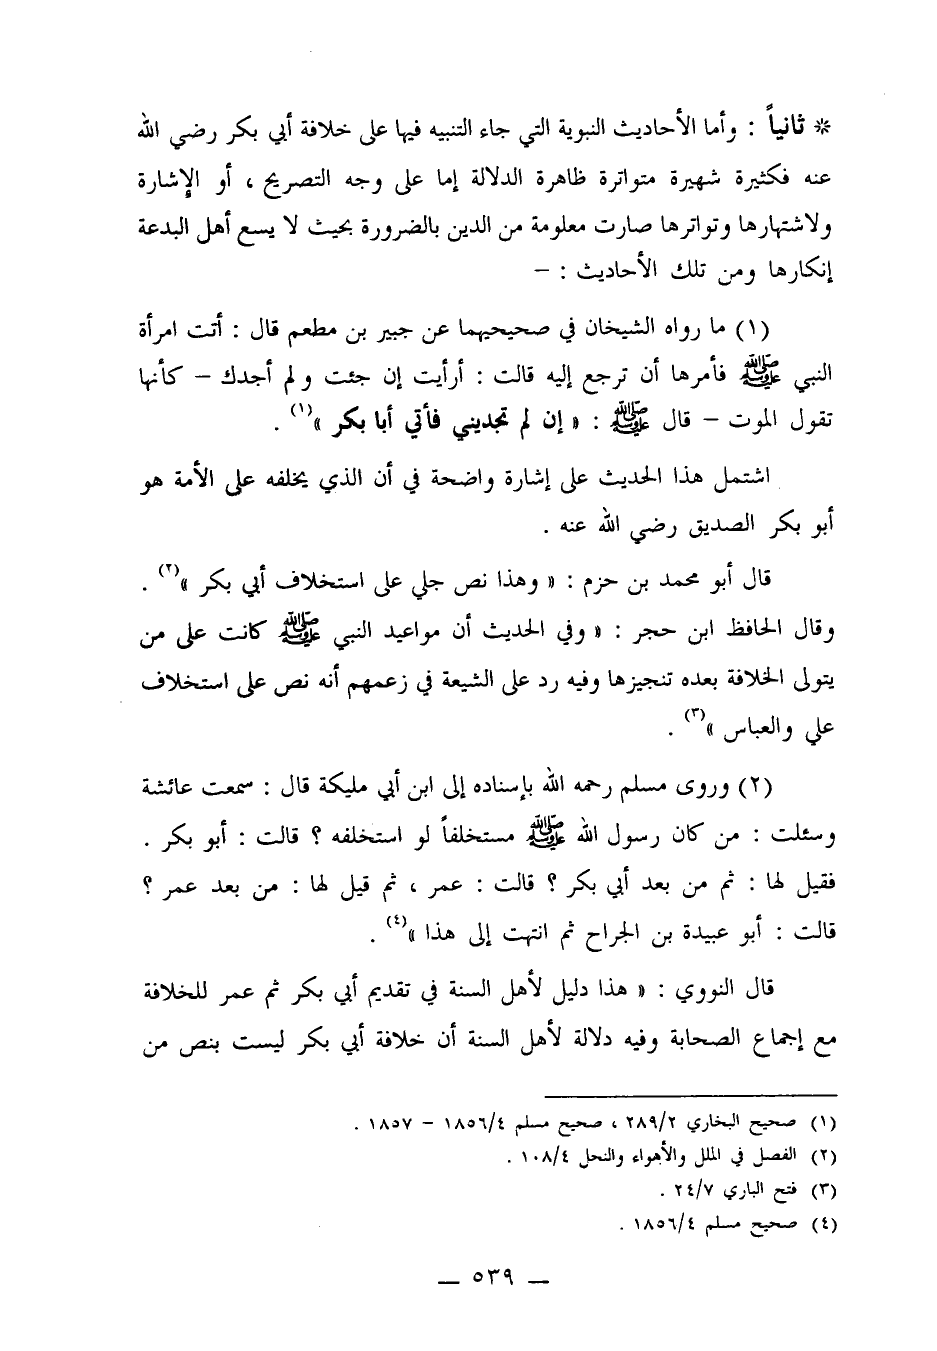 * ثانياً : وأما الأحاديث النبوية التي جاء التنبيه فيها على خلافة أبي بكر رضي الله
عنه فكثيرة شهيرة متواترة ظاهرة الدلالة إما على وجه التصريح ، أو الإشارة
ولاشتهارها وتواترها صارت معلومة من الدين بالضرورة بحيث لا يسع أهل البدعة
إنكارها ومن تلك الأحاديث : –
(١) ما رواه الشيخان في صحيحيهما عن جبير بن مطعم قال : أتت امرأة
النبي ﷺ فأمرها أن ترجع إليه قالت : أرأيت إن جئت ولم أجدك – كأنها
تقول الموت – قال ﷺ : « إن لم تجديني فأتي أبا بكر »(١) .
اشتمل هذا الحديث على إشارة واضحة في أن الذي يخلفه على الأمة هو
أبو بكر الصديق رضي الله عنه .
قال أبو محمد بن حزم : « وهذا نص جلي على استخلاف أبي بكر »(٢) .
وقال الحافظ ابن حجر : « وفي الحديث أن مواعيد النبي ﷺ كانت على من
يتولى الخلافة بعده تنجيزها وفيه رد على الشيعة في زعمهم أنه نص على استخلاف
علي والعباس »(٣) .
(٢) وروى مسلم رحمه الله بإسناده إلى ابن أبي مليكة قال : سمعت عائشة
وسئلت : من كان رسول الله ﷺ مستخلفاً لو استخلفه ؟ قالت : أبو بكر .
فقيل لها : ثم من بعد أبي بكر ؟ قالت : عمر ، ثم قيل لها : من بعد عمر ؟
قالت : أبو عبيدة بن الجراح ثم انتهت إلى هذا »(٤) .
قال النووي : « هذا دليل لأهل السنة في تقديم أبي بكر ثم عمر للخلافة
مع إجماع الصحابة وفيه دلالة لأهل السنة أن خلافة أبي بكر ليست بنص من
(١) صحيح البخاري ٢/٢٨٩ ، صحيح مسلم ٤/١٨٥٦ – ١٨٥٧ .
(٢) الفصل في الملل والأهواء والنحل ٤/١٠٨ .
(٣) فتح الباري ٧/٢٤ .
(٤) صحيح مسلم ٤/١٨٥٦ .
— ٥٣٩ —